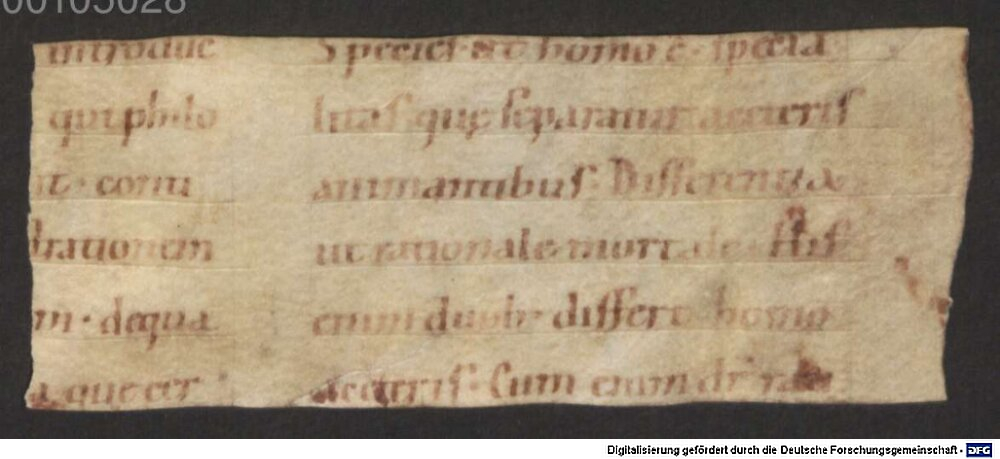 00105028
introduc
qui philo
it · conti
rationem
m · dequa
a que cer
Species · ut homo ē · specia
litas quę separatur a ceteris
animantibus · Differentia
ut rationale · mortale · His
enim duob; differt homo
a ceteris · Cum enim dr̄
Digitalisierung gefördert durch die Deutsche Forschungsgemeinschaft - DFG